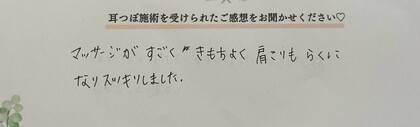 耳つぼ施術を受けられたご感想をお聞かせください♡
マッサージが すごく きもちよく 肩こりも らくに
なりスッキリしました.